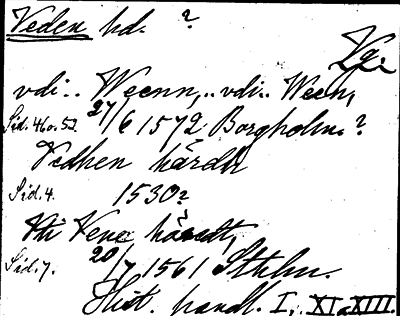 Veden hd. ?
Vg.
vdi .. Weenn, .. vdi .. Ween,
Sid. 46 o. 52. 27/6 1572 Borgholm. ?
Vedhen härdh
Sid. 4. 1530?
Vti Vene häredt,
Sid. 7. 20/7 1561 Sthlm.
Hist. handl. I, XI o XIII.